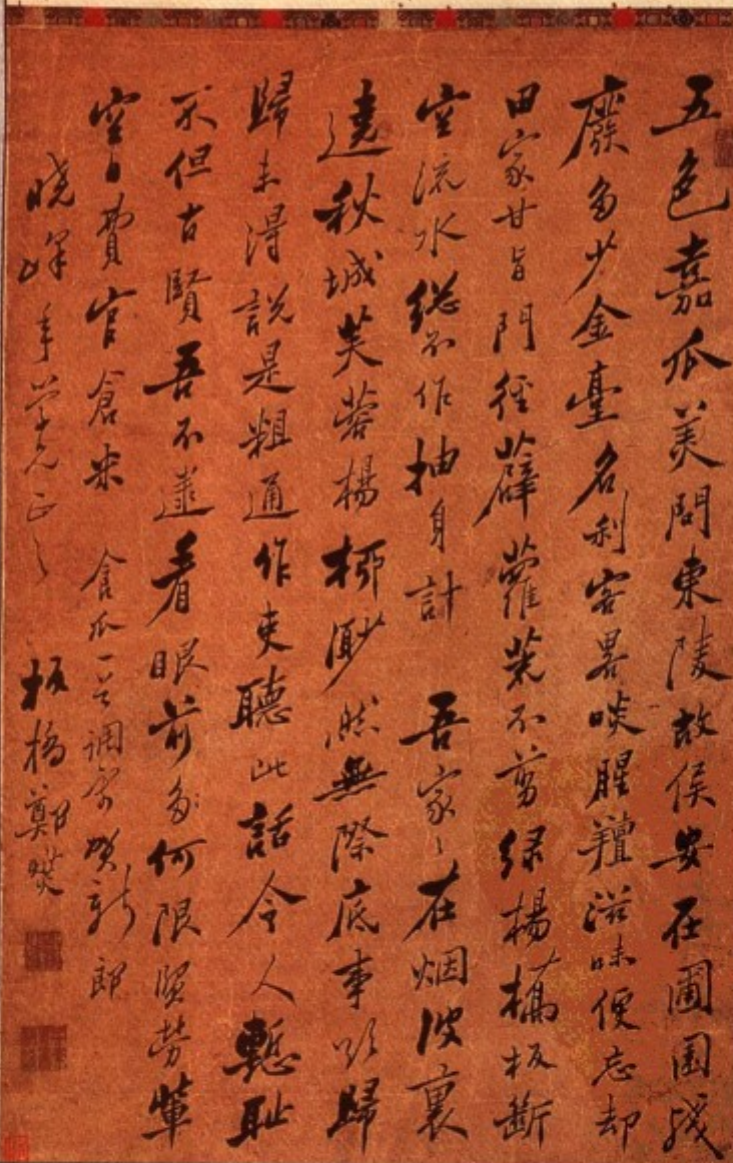 五色嘉瓜美問東陵故侯安在圃園殘
廢多少金臺名利客畧啖腥羶滋味便忘却
田家甘旨門徑薜蘿荒不剪綠楊橋板斷
空流水總不作抽身計　吾家〻在烟波裏
遶秋城芙蓉楊柳渺然無際底事欲歸
歸未得說是粗通作吏聽此話令人慙恥
不但古賢吾不逮看眼前多何限賢勞輩
空日費官倉米　食瓜一首調寄賀新郎
曉峰年學兄正之　板橋鄭燮